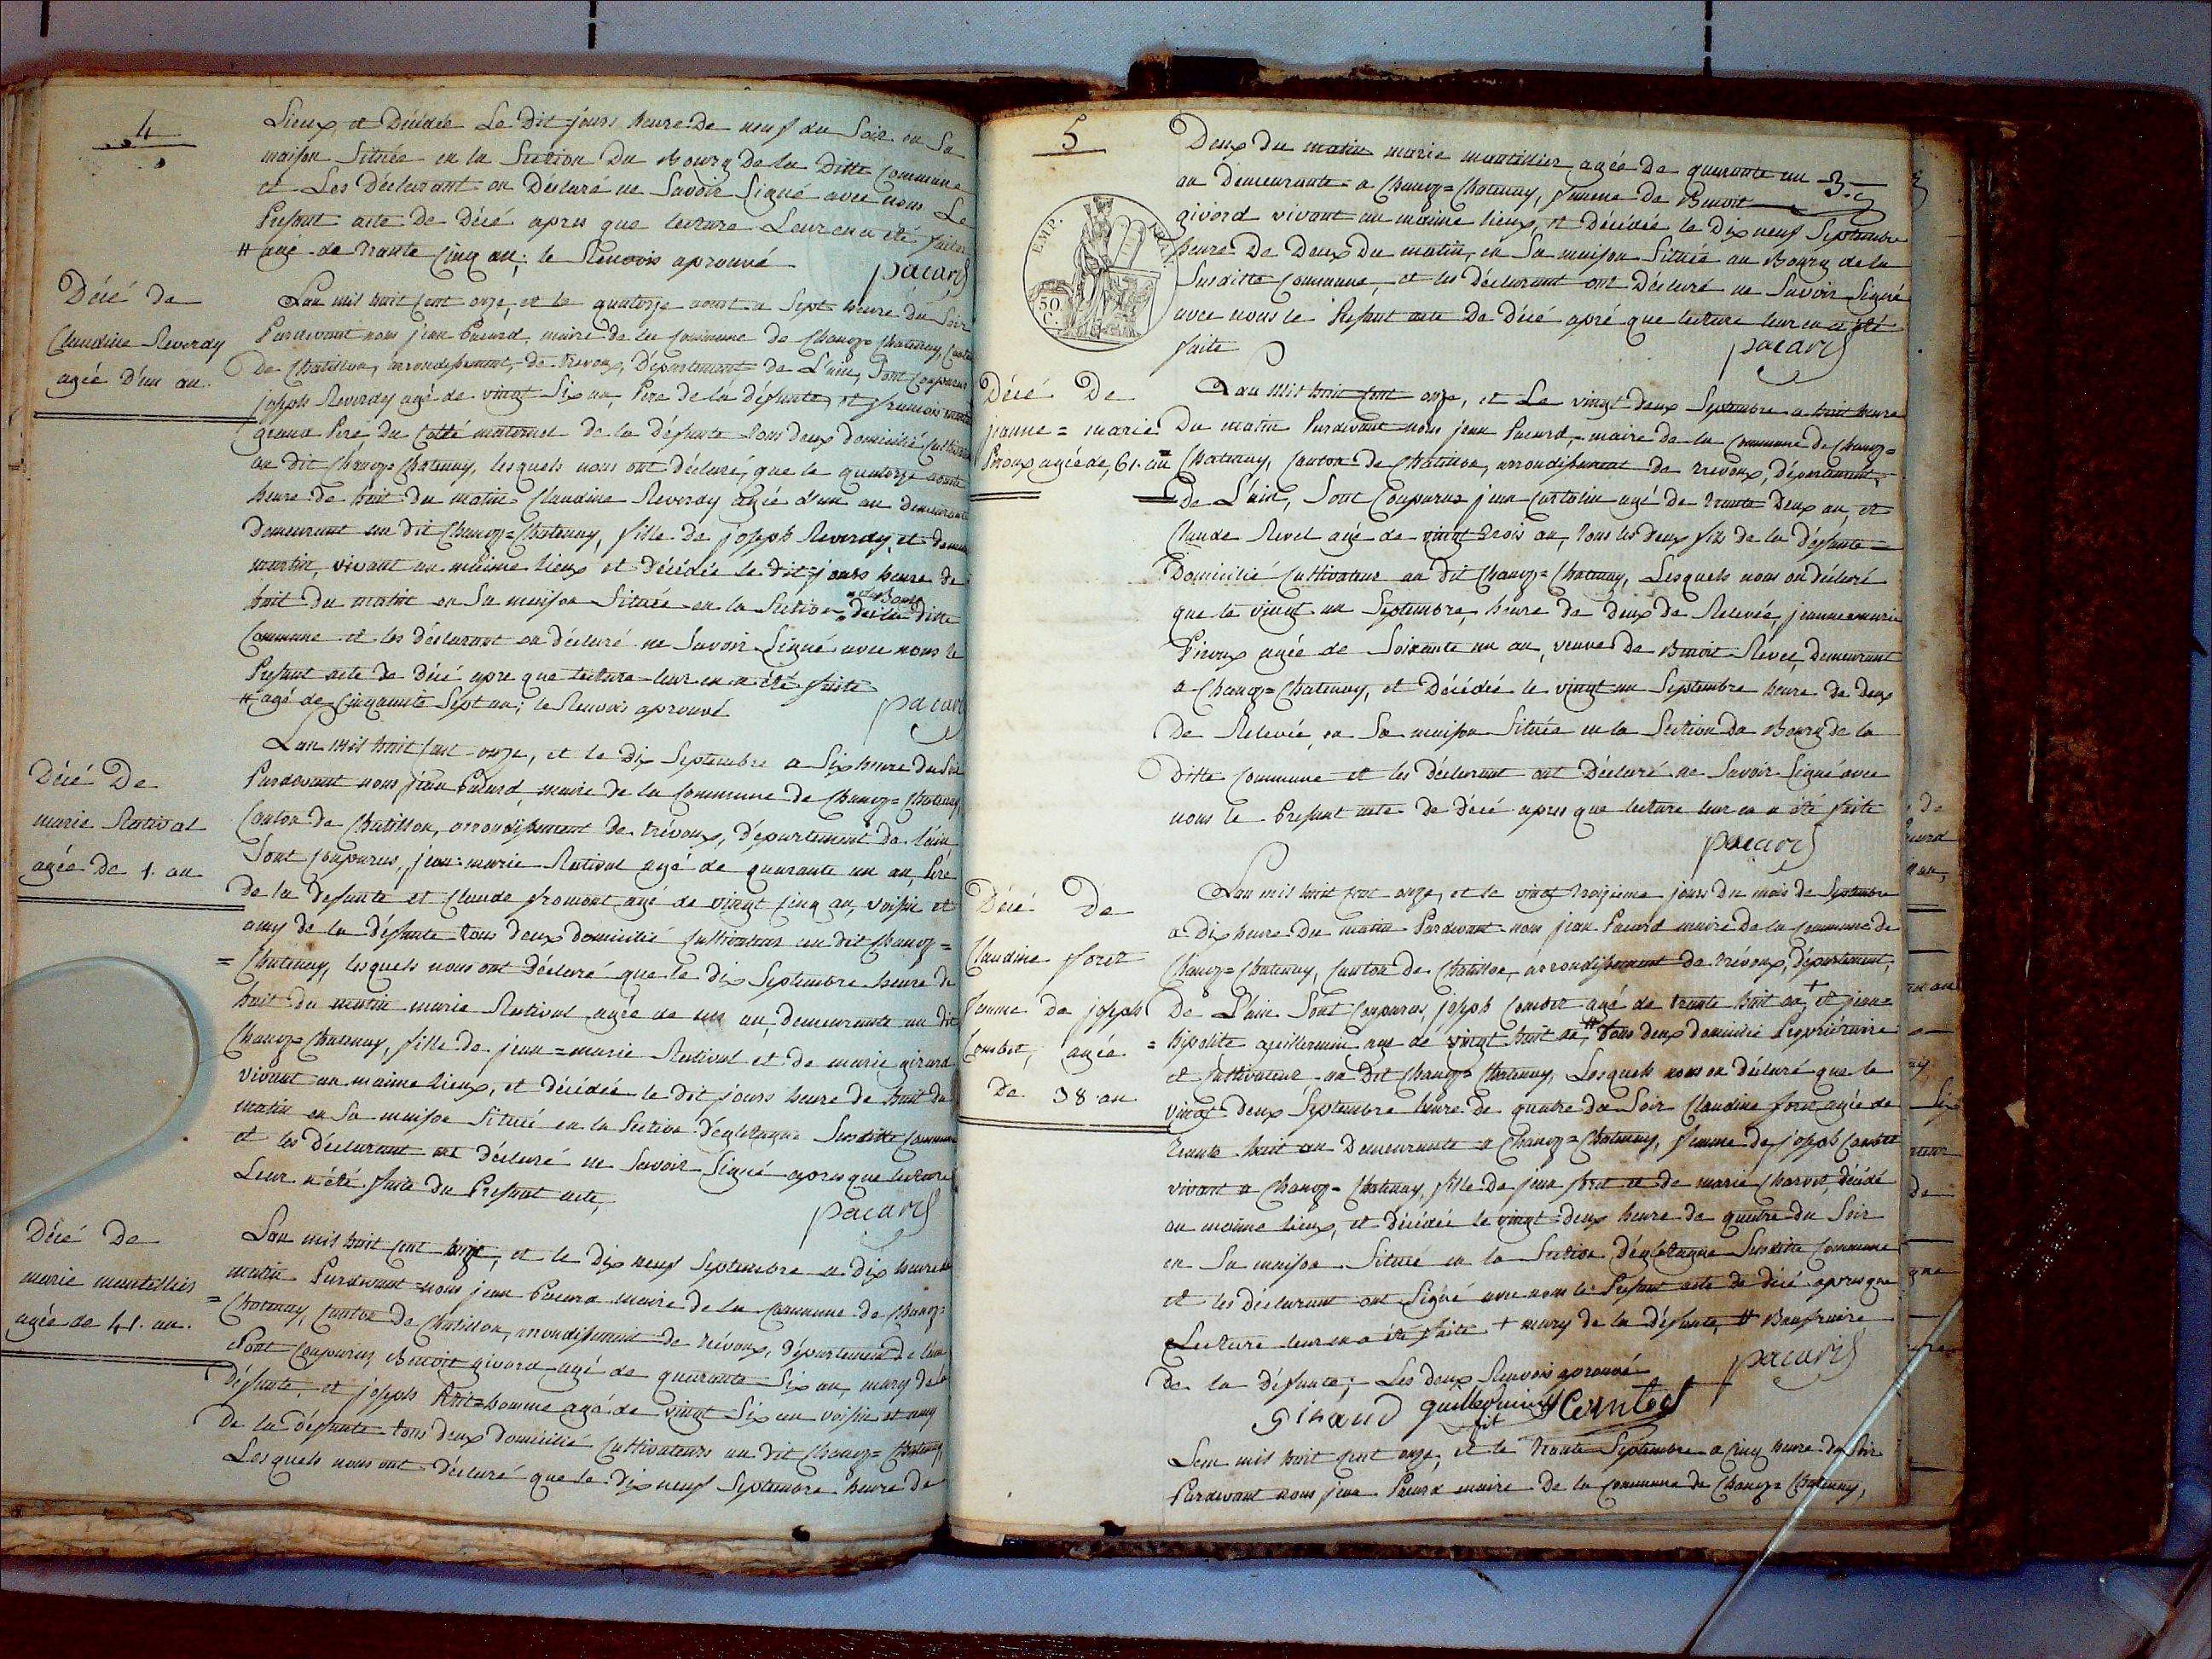 4
Lieux, et Décédée Le Dit jours heure De neuf du Soir en Sa
maison Située en la Section Du Bourg De la Ditte Commune
et Les Déclarant on Déclaré ne Savoir Signé avec nous Le
Present acte De Décé apres que lecture Leur en a été faite
# agé de trante Cinq an; le Renvois aprouvé
pacard
Décé De
Claudine Reverdy
agée D'un an.
Lan mil huit Cent onze, et le quatorze aoust a Sept heure du Soir
Pardevant nous jean Pacard, maire de la Commune de Chanoz=Chatenay, Canton
De Chatillon, arrondissement, de trevoux, Département de L'ain, Sont Comparus
joseph Reverdy agé de vingt Six an, Pere de la défunte, et francois martin
grand Pere du Cotté maternel de la défunte tous deux domicilié Cultivateur
au dit Chanoz=Chatenay, lesquels nous ont déclaré, que le quatorze aoust
heure de huit du matin Claudine Reverdy agée d'un an demeurant
Demeurant au dit Chanoz=Chatenay, fille de joseph Reverdy, et de
martin, vivant au maime lieux et décédée le dit jours heure de
huit du matin en Sa maison Située en la Section de la Ditte
du Bourg
Commune et les déclarant on déclaré ne Savoir Signé avec nous le
Present acte de décé apre que lecture leur en a été faite
# agé de Cinquante Sept an; le Renvois aprouvé
pacard
Décé De
marie Rativat
agée de 1. an
Lan mil huit Cent onze, et le dix Septembre a Six heure du Soir
Pardevant nous jean Pacard, maire de la Commune de Chanoz=Chatenay,
Canton de Chatillon, arrondissement de trévoux, département de l'ain,
Sont Comparus, jean=marie Rativat agé de quarante un an, Pére
de la défunte et Claude fromont agé de vingt Cinq an, voisin et
amy de la défunte tous deux domicilié Cultivateur au dit Chanoz=
=Chatenay, lesquels nous ont déclaré que le dix Septembre heure de
huit du matin marie Rativat agée de un an, demeurante au dit
Chanoz=Chatenay, fille de jean=marie Rativat et de marie girard
vivant au maime lieux, et décédée le dit jours heure de huit du
matin en Sa maison Situeé en la Section d'égletagne Susditte Commune
et les déclarant ont déclaré ne Savoir Signé apres que lecture
Leur a été faite du Present acte,
pacard
Décé De
marie mantillier
agée de 41. an.
Lan mil huit Cent onze, et le Dix neuf Septembre a Dix heure du
matin Pardevant nous jean Pacard maire de la Commune de Chanoz=
=Chatenay, Canton De Chatillon, arrondissement de trévoux, département De l'ain
Sont Comparus, Benoit givord agé de quarante Six an, mary de la
défunte, et joseph Petit=homme agé de vingt Six an voisin et amy
de la défunte tous deux domicilié Cultivateurs au dit Chanoz=Chatenay,
Lesquels nous ont déclaré que le dix neuf Septembre heure de
5
3.e
EMP.
50
C.
Deux du matin marie mantillier agée de quarante un
an Demeurante a Chanoz=Chatenay, femme de Benoit
givord vivant au maime lieux, et Décédée le Dix neuf Septembre
heure De Deux Du matin, en Sa maison Située au Bourg de la
Susditte Commune, et les déclarant ont Déclaré ne Savoir Signé
avec nous le Present acte De décé apré que lecture leur en a été
faite
pacard
Décé De
jeanne=marie
Piroux agée de 61. an
Lan Mil huit Cent onze, et Le vingt deux Septembre a huit heure
Du matin Pardevant nous jean Pacard, maire de la Commune de Chanoz=
=Chatenay, Canton de Chatillon, arrondissement de trevoux, département,
de L'ain, Sont Comparus jean Cartalin agé De trante Deux an, et
Claude Revel agé de vingt trois an, tous les deux fils de la défunte
Domicilié Cultivateur au dit Chanoz=Chatenay, Lesquels nous on déclaré
que le vingt un Septembre, heure de deux de Relevée, jeanne=marie
Piroux agée de Soixante un an, veuve De Benoit Revel Demeurant
a Chanoz=Chatenay, et Décédée le vingt un Septembre heure de deux
De Relevée, en Sa maison Située en la Section Du Bourg de la
Ditte Commune et les Déclarant ont Déclaré ne Savoir Signé avec
nous le Present acte de décé apres que lecture leur en a été faite
pacard
Décé De
Claudine foret
femme de joseph
Combet, agée
De 38 an
Lan mil huit Cent onze, et le vingt troizieme jours du mois de Septembre
a Dix heure Du matin Pardevant nous jean Pacard maire de la Commune de
Chanoz=Chatenay, Canton de Chatillon, arrondissement de trévoux, département,
De L'ain Sont Comparus, joseph Combet agé de trante huit an + et jean=
=hipolite guillermin agé de vingt huit an, # tous deux domicilié Proprietaire
et Cultivateur au Dit Chanoz=Chatenay, Lesquels nous on déclaré que le
vingt=deux Septembre heure de quatre du Soir Claudine foret agée de
trante huit an Demeurante a Chanoz=Chatenay, femme de joseph Combet
vivant a Chanoz=Chatenay, fille de jean foret et de marie Charvet, décédé
au maime lieux, et décédée le vingt=deux heure de quatre du Soir
en Sa maison Situeé en la Section d'égletagne Susditte Commune
et les Déclarant ont Signé avec nous le Present acte de décé apres que
Lecture leur en a été faite + mary de la défunte, # Beaufraire
De la Défunte; Les deux Renvois aprouvé
pacard
giraud guillermin J Combet
fit
Lan mil huit Cent onze, et le trante Septembre a Cinq heure du Soir
Pardevant nous jean Pacard maire De la Commune de Chanoz=Chatenay,